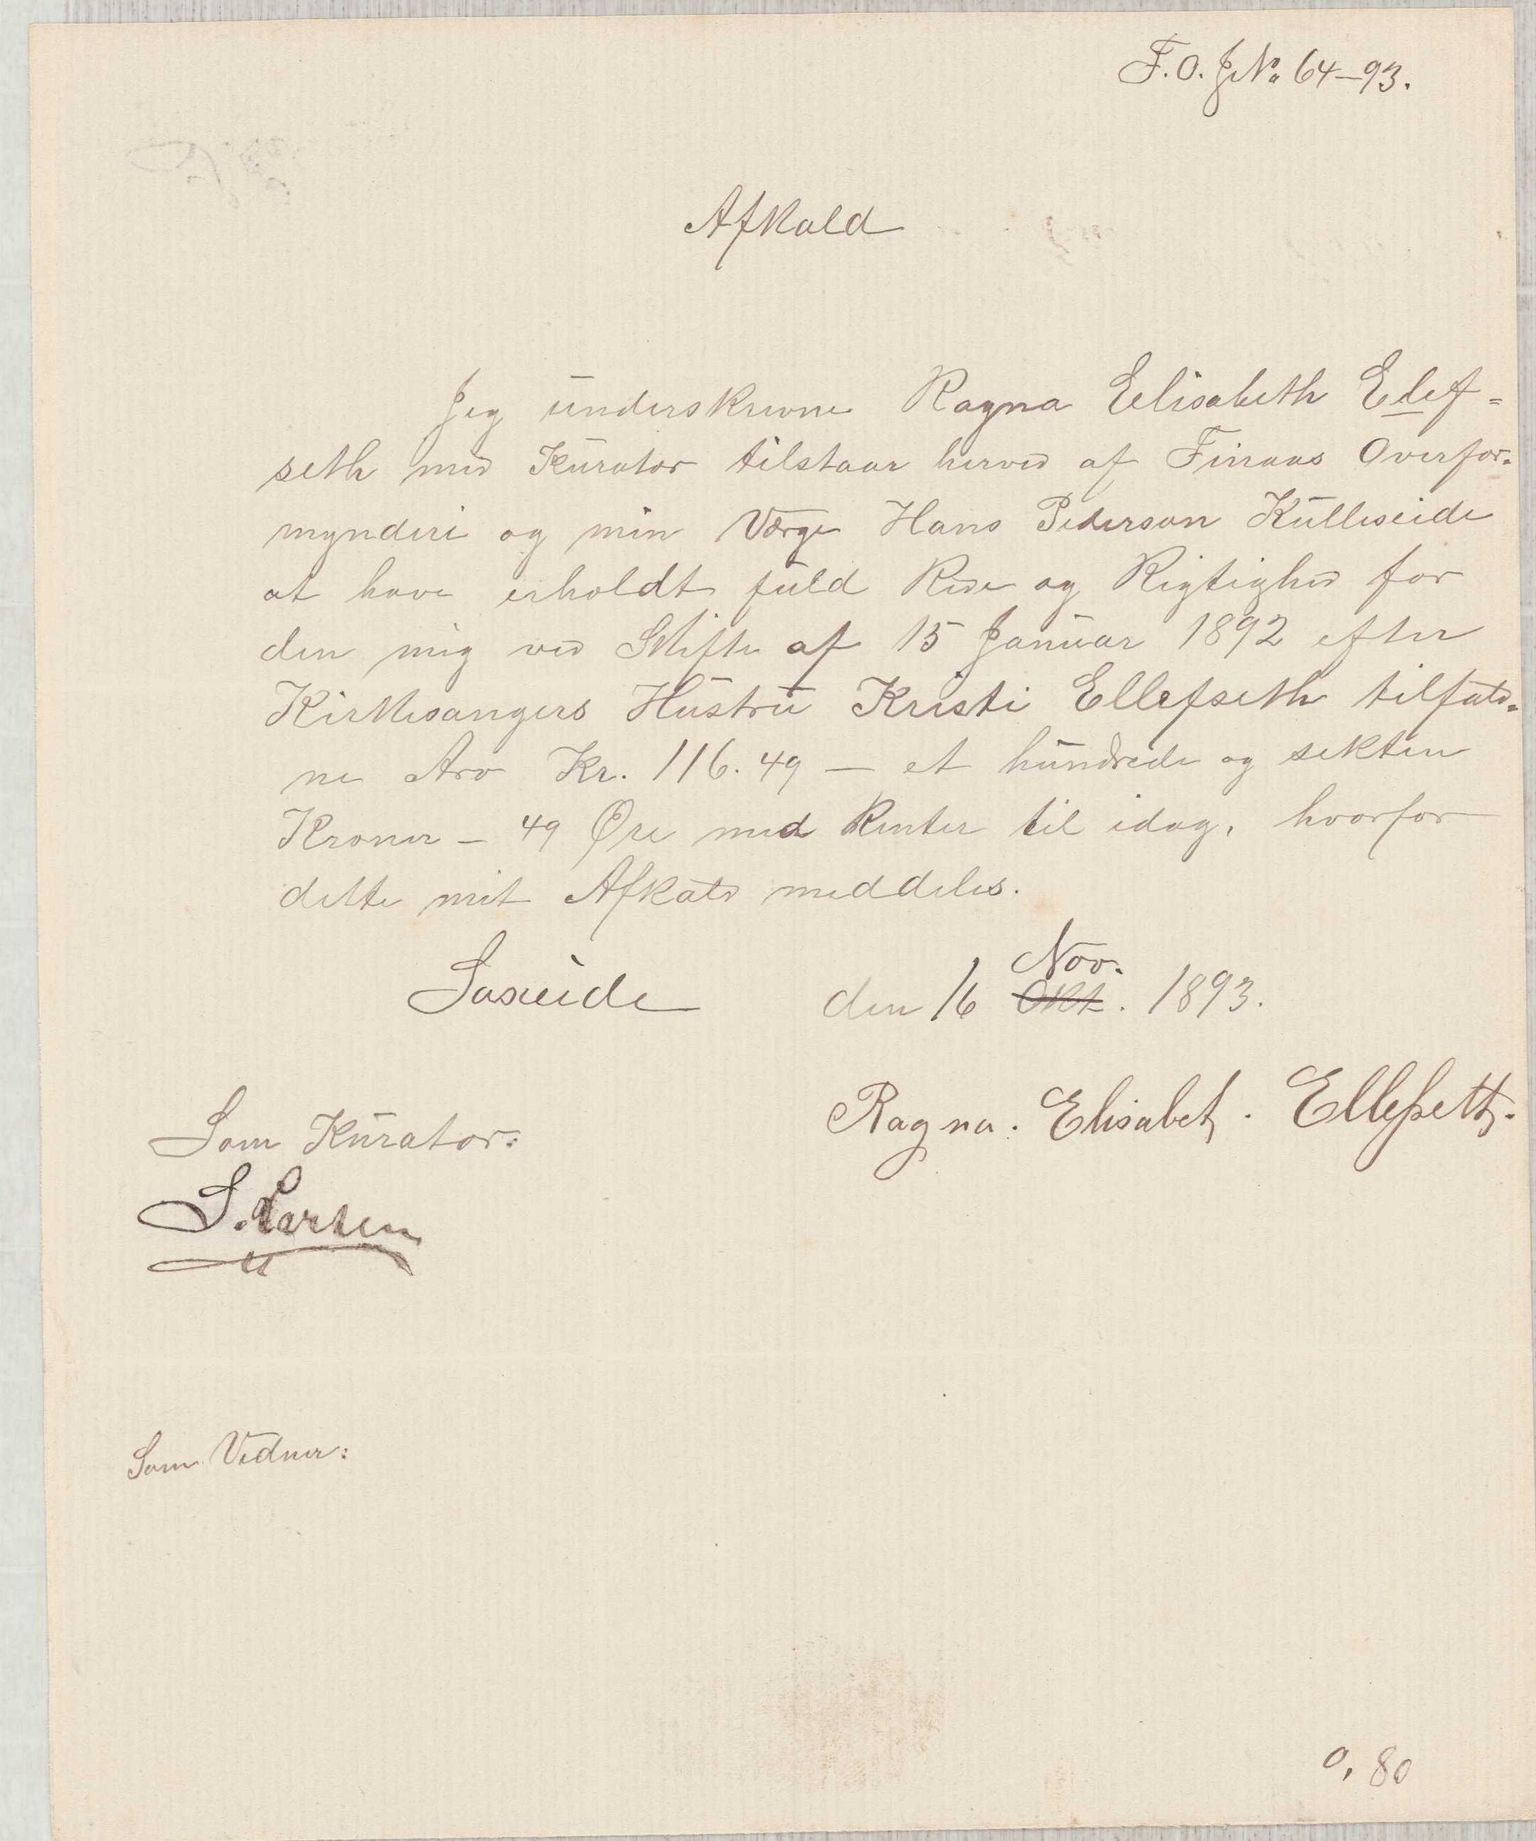 F. O. J. No 64-93.
Afkald
Jeg underskrevne Ragna Elisabeth Elef=
seth med Kurator tilstaar herved af Finaas Overfor-
mynderi og min Værge Hans Pederson Kulleseide
at have erholdt fuld Rede og Rigtighed for
den mig ved Skifte af 15 Januar 1892 efter
Kirkesangers Hustru Kristi Ellefseth tilfald-
ne Arv Kr. 116.49 — et hundrede og seksten
Kroner - 49 Øre med Renter til idag, hvorfor
dette mit Afkald meddeles.
Saxeide den 16 Nov. Okt. 1893.
Ragna. Elisabet. Ellefsetth.
Som Kurator:
S. Larsen
Som Vidner:
0,80